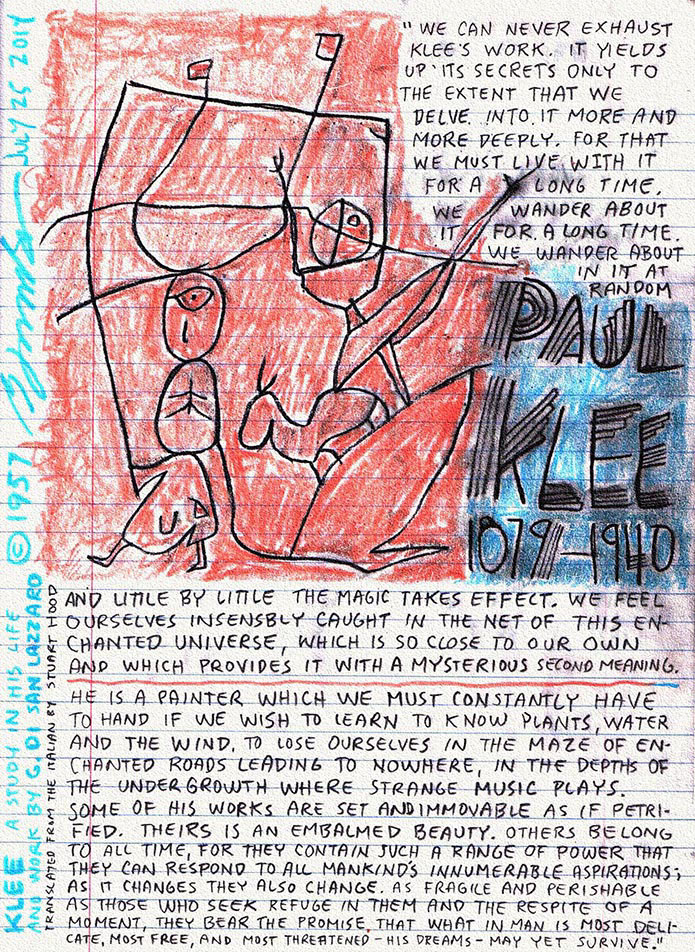 "WE CAN NEVER EXHAUST
KLEE'S WORK. IT YIELDS
UP ITS SECRETS ONLY TO
THE EXTENT THAT WE
DELVE INTO IT MORE AND
MORE DEEPLY. FOR THAT
WE MUST LIVE WITH IT
FOR A LONG TIME,
WE WANDER ABOUT
IT FOR A LONG TIME.
WE WANDER ABOUT
IN IT AT
RANDOM
PAUL
KLEE
1879-1940
AND LITTLE BY LITTLE THE MAGIC TAKES EFFECT. WE FEEL
OURSELVES INSENSBLY CAUGHT IN THE NET OF THIS EN-
CHANTED UNIVERSE, WHICH IS SO CLOSE TO OUR OWN
AND WHICH PROVIDES IT WITH A MYSTERIOUS SECOND MEANING.
HE IS A PAINTER WHICH WE MUST CONSTANTLY HAVE
TO HAND IF WE WISH TO LEARN TO KNOW PLANTS, WATER
AND THE WIND, TO LOSE OURSELVES IN THE MAZE OF EN-
CHANTED ROADS LEADING TO NOWHERE, IN THE DEPTHS OF
THE UNDERGROWTH WHERE STRANGE MUSIC PLAYS.
SOME OF HIS WORKS ARE SET AND IMMOVABLE AS IF PETRI-
FIED. THEIRS IS AN EMBALMED BEAUTY. OTHERS BELONG
TO ALL TIME, FOR THEY CONTAIN SUCH A RANGE OF POWER THAT
THEY CAN RESPOND TO ALL MANKIND'S INNUMERABLE ASPIRATIONS;
AS IT CHANGES THEY ALSO CHANGE. AS FRAGILE AND PERISHABLE
AS THOSE WHO SEEK REFUGE IN THEM AND THE RESPITE OF A
MOMENT, THEY BEAR THE PROMISE THAT WHAT IN MAN IS MOST DELI-
CATE, MOST FREE, AND MOST THREATENED - HIS DREAMS - MAY YET SURVIVE."
KLEE A STUDY IN HIS LIFE
AND WORK BY G. DI SAN LAZZARO © 1957
TRANSLATED FROM THE ITALIAN BY STUART HOOD
JULY 25 2014